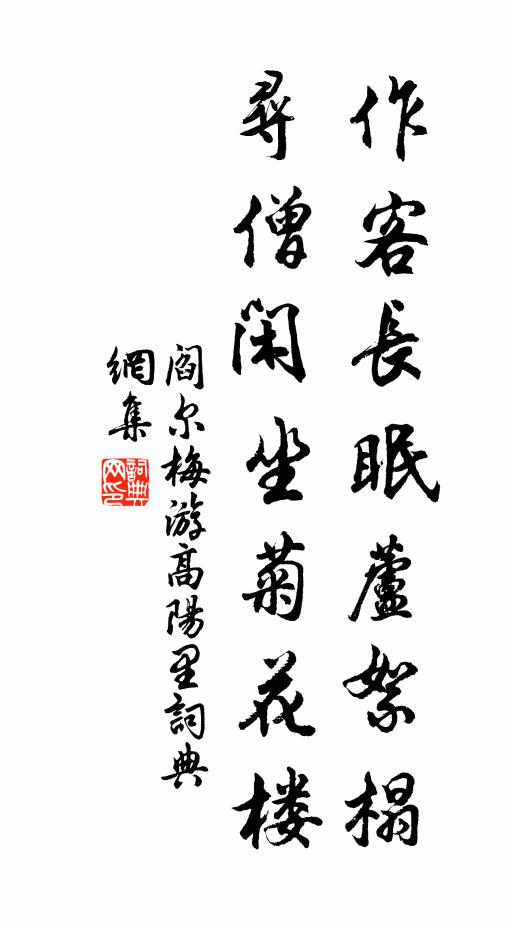 作客長眠蘆絮榻
尋僧閑坐菊花楼
阎尔梅游高陽里詞典
網集
詞典
网印